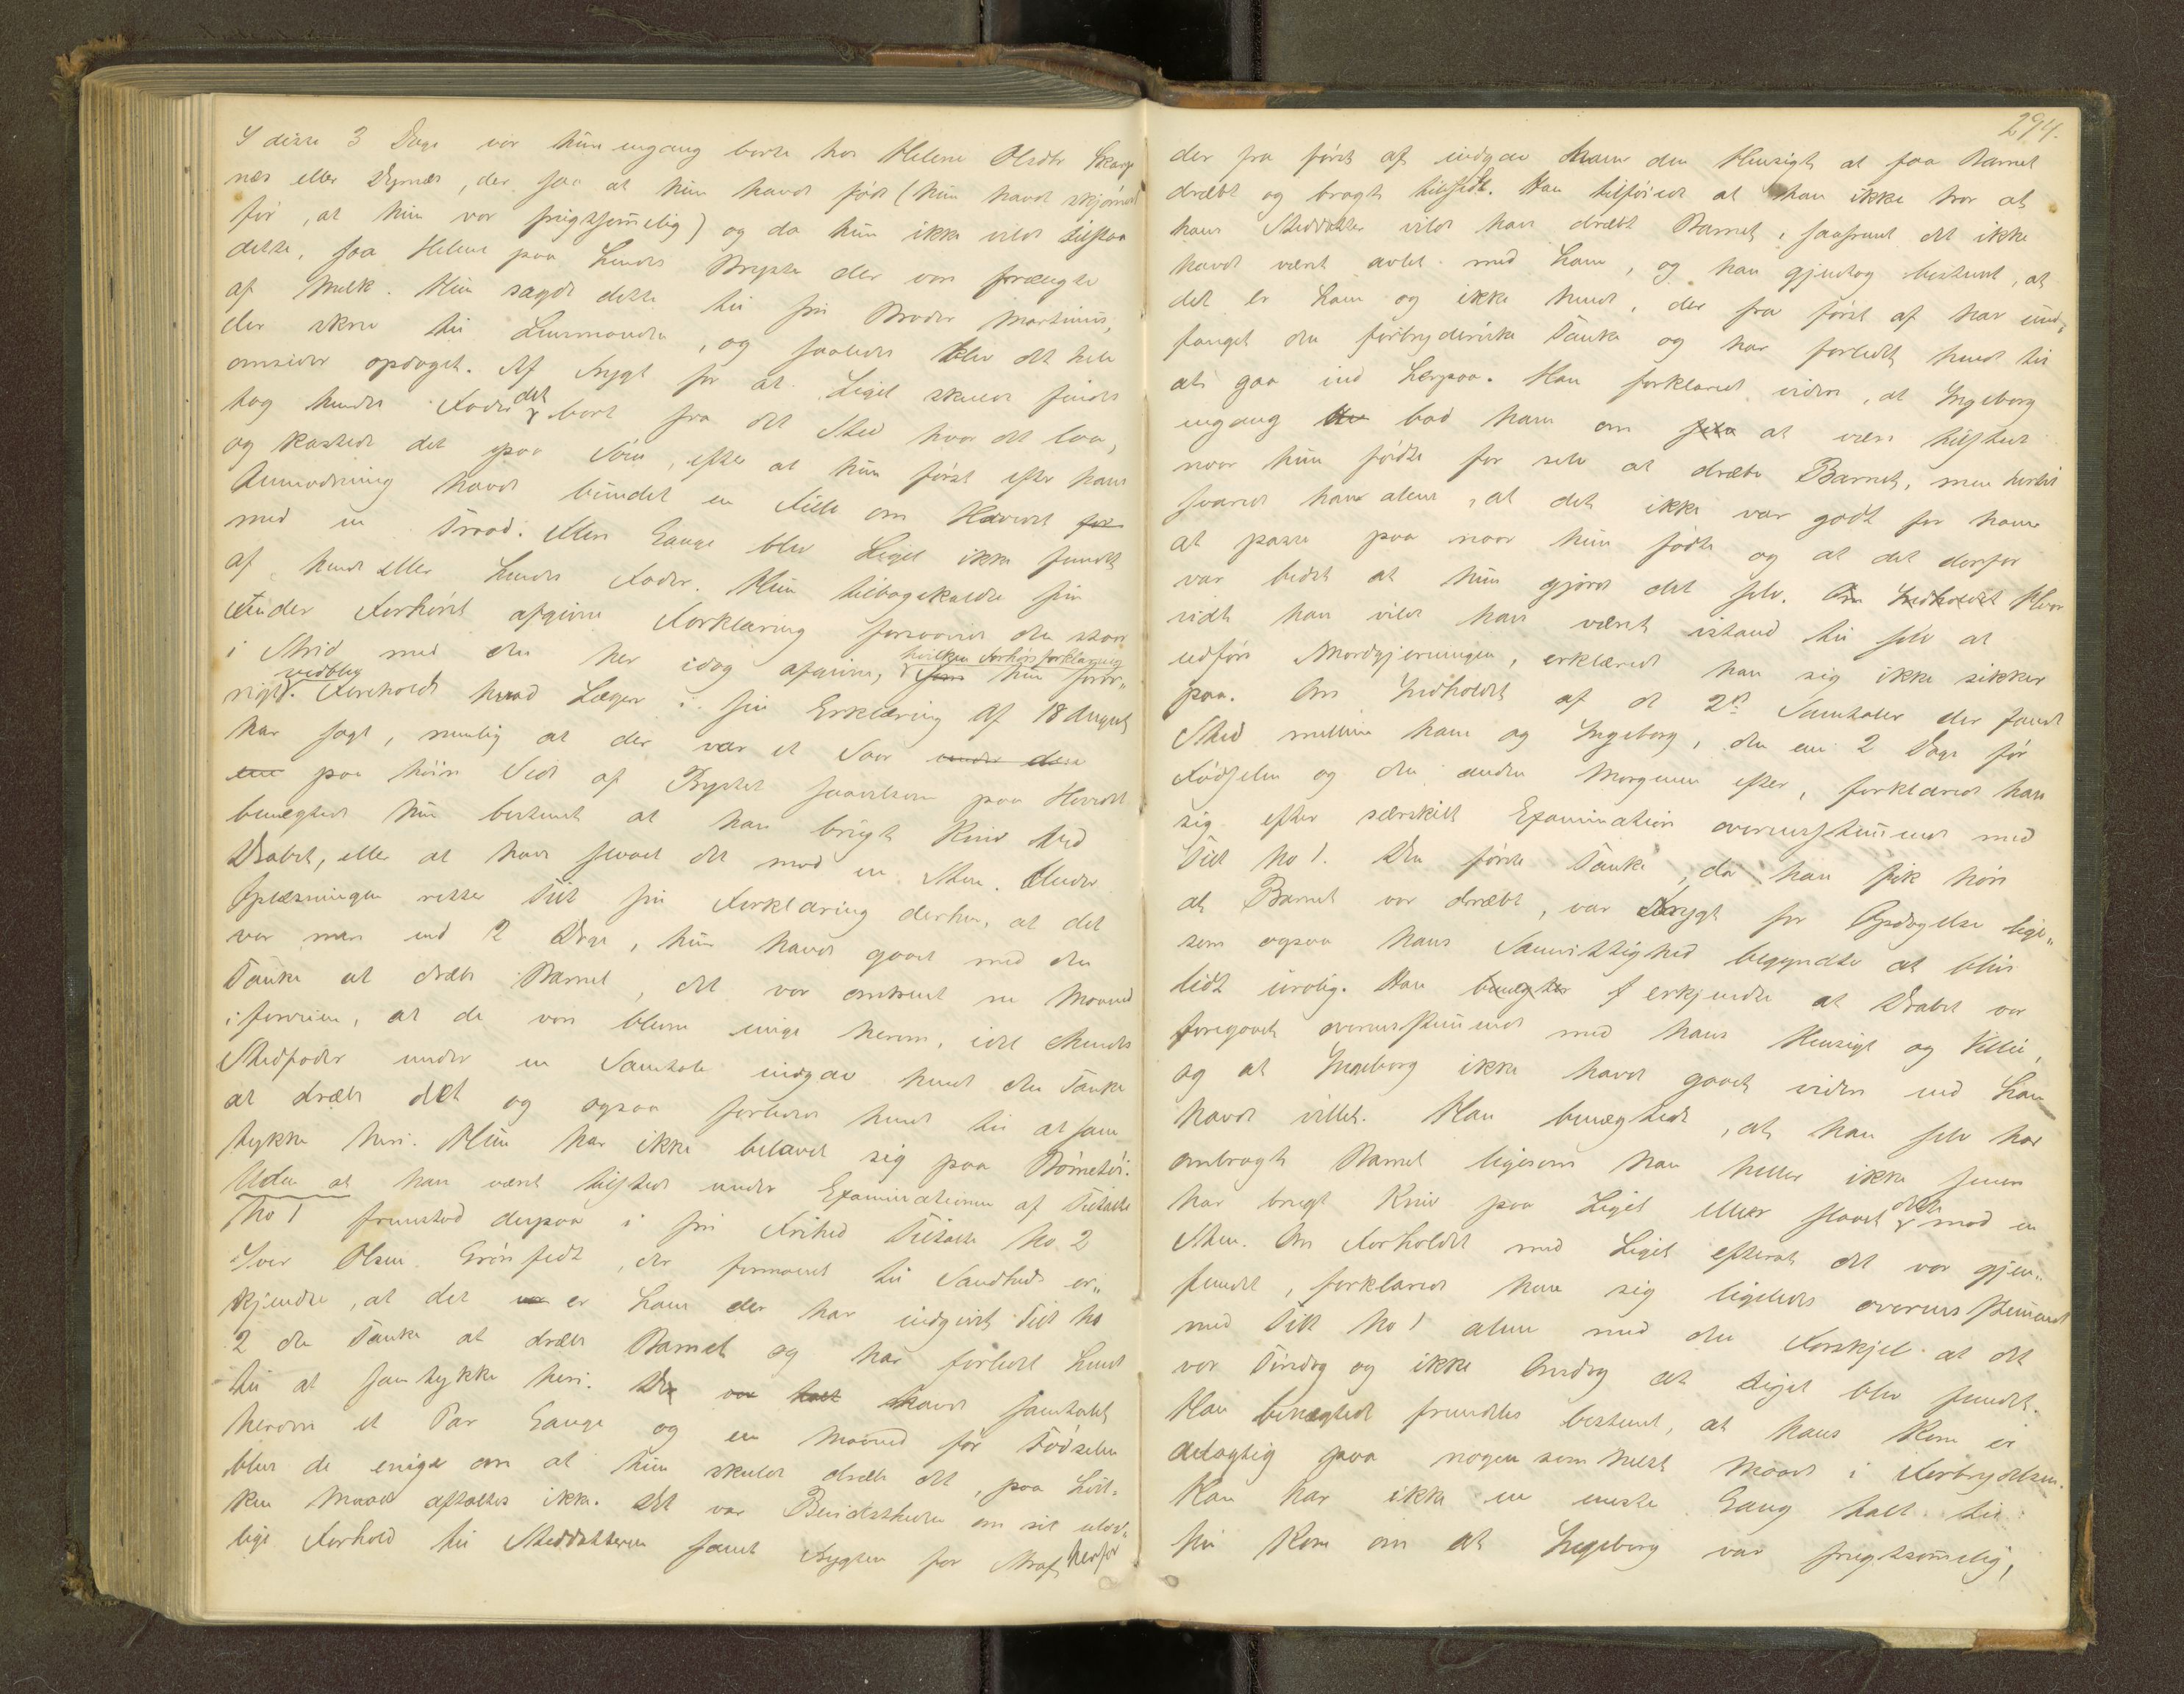 I disse 3 Dage var hun engang borte hos Helene Olsdtr
nes eller Dypnæs, der saa at hun havde født (hun havde skjønnet
før, at hun var frugtsommelig) og da hun ikke vilde tilstaa
dette, saa Helene paa hendes Bryste der vare sprængte
af Melk. Hun sagde dette til sin Broder Martinus,
der skrev til Lensmanden, og saaledes blev det hele
omsider opdaget. Af Frygt for at Liget skulde findes
tog hendes Fader det bort fra det Sted hvor det laa,
og kastede det paa Søen, efter at hun først efter hans
Anmodning havde bundet en Fille om Hovedet for
med en Traad. Flere Gange blev Liget ikke fundet
af hende eller hendes Fader. Hun tilbagekaldte sin
under Forhøret afgivne Forklaring forsaavidt den staar
i Strid med den her idag afgivne, hvilken Forhørsforklaring som hun forøv-
rigt vedblev. Foreholdt hvad Lægen i sin Erklæring af 18 August
har sagt, nemlig at der var et Saar under disse
en paa høire Side af Brystet saavelsom paa Hovedet
benegtede hun bestemt at have brugt Kniv ved
Drabet, eller at have slaaet det mod en Sten. Under
Oplæsningen retter Tilt sin Forklaring derhen, at det
var mere end 2 Dage, hun havde gaaet med den
Tanke at dræbe Barnet, det var omtrent en Maaned
iforveien, at de vare blevne enige herom, idet hendes
Stedfader under en Samtale indgav hende den Tanke
at dræbe det og ogsaa forledede hende til at sam
tykke heri. Hun har ikke belavet sig paa Børnetøi.
Uden at have været tilstede under Examinationen af Tiltalte
No 1 fremstod derpaa i sin Frihed Tiltalte No 2
Iver Olsen Grønfedt, der formanet til Sandhed er-
kjendte, at det var er ham der har indgivet Tilt No
2 den Tanke at dræbe Barnet og har forledet hende
til at samtykke heri. De var havt havde samtalet
herom et Par Gange og en Maaned før Fødselen
blev de enige om at hun skulde dræbe det, paa hvil-
ken Maade aftaltes ikke. Det var Bevidstheden om sit ulov-
lige Forhold til Steddatteren samt Frygten for Straf herfor
294.
der fra først af indgav ham den Hensigt at faa Barnet
dræbt og bragt tilside. Han tilføiede at han ikke tror at
hans Steddatter vilde have dræbt Barnet, saafremt det ikke
havde været avlet med ham, og han gjentog bestemt, at
det er ham og ikke hende, der fra først af har und-
fanget den forbryderiske Tanke og har forledet hende til
at gaa ind herpaa. Han forklarede videre, at Ingeborg
engang bad ham om at være tilstede
naar hun fødte for selv at dræbe Barnet, men hertil
svarede han alene, at det ikke var godt for ham
at passe paa naar hun fødte og at det derfor
var bedst at hun gjorde det selv. Om Indholdet Hvor
vidt han vilde have været istand til selv at
udføre Mordgjerningen, erklærede han sig ikke sikker
paa. Om Indholdet af de 2de Samtaler der fandt
Sted mellem ham og Ingeborg, den ene 2 Dage før
Fødselen og den anden Morgenen efter, forklarede han
sig efter særskilt Examination overensstemmende med
Tilt No 1. Den første Tanke, da han fik høre
at Barnet var dræbt, var Frygt for Opdagelse lige-
som ogsaa hans Samvittighed begyndte at blive
lidt urolig. Han benegter erkjendte at Drabet var
foregaaet overensstemmende med hans Hensigt og Villie,
og at Ingeborg ikke havde gaaet videre end han
havde villet. Han benegtede, at han selv har
ombragt Barnet ligesom han heller ikke senere
har brugt Kniv paa Liget eller slaaet det mod en
Sten. Om Forholdet med Liget efterat det var gjen-
fundet, forklarede han sig ligeledes overensstemmende
med Tilt No 1 alene med den Forskjel at det
var Tirsdag og ikke Onsdag at Liget blev fundet.
Han benegtede fremdeles bestemt, at hans Kone er
delagtig paa nogensomhelst Maade i Forbrydelsen.
Han har ikke en eneste Gang talt til
sin Kone om at Ingeborg var frugtsommelig,